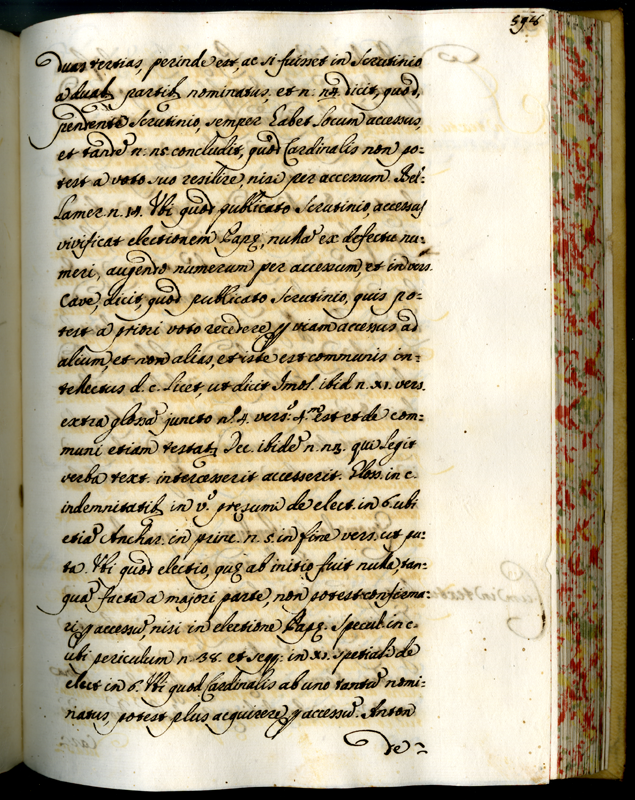 duas tertias, perinde est, ac si fuisset in Scrutinio
a duab. partib. nominatus, et n. n4. dicit, quod,
pendente Scrutinio, semper habet locum accessus,
et tande n. n5. concludit, quod Cardinalis non po=
test a voto suo resilire, nisi per accessum. Bel=
lamer. n. 14. Ubi quod publicato Scrutinio, accessus
vivificat electionem Papę, nulla ex defectu nu=
meri, augendo numerum per accessum, et in vers.
Cave, dicit, quod publicato Scrutinio, quis po=
test a priori voto recedere p viam accessus ad
alium, et non alias, et iste est communis in=
tellectus d. c. Licet, ut dicit Imol. ibid. n. xi. vers.
extra glossa juncto n.º 4. vers.º 4.m est et de com=
muni etiam testat. Dec. ibide n. n3. qui legit
verba text. intercesserit accesserit. Gloss. in c.
indemnitatib. in v.º pręsumi de elect. in 6. ubi
etia Anchar. in princ. n. 5. in fine vers. ut pu=
ta. Ubi quod electio, quę ab initio fuit nulla, tan=
qua facta a majori parte, non potest confirma=
ri p accessu nisi in electione Papę. Specul. in c.
ubi periculum n. 38. et seqq. in xi. spetiali de
elect. in 6. Ubi quod Cardinalis ab uno tantu nomi=
natus, potest plus acquirere p accessu. Anton
de=